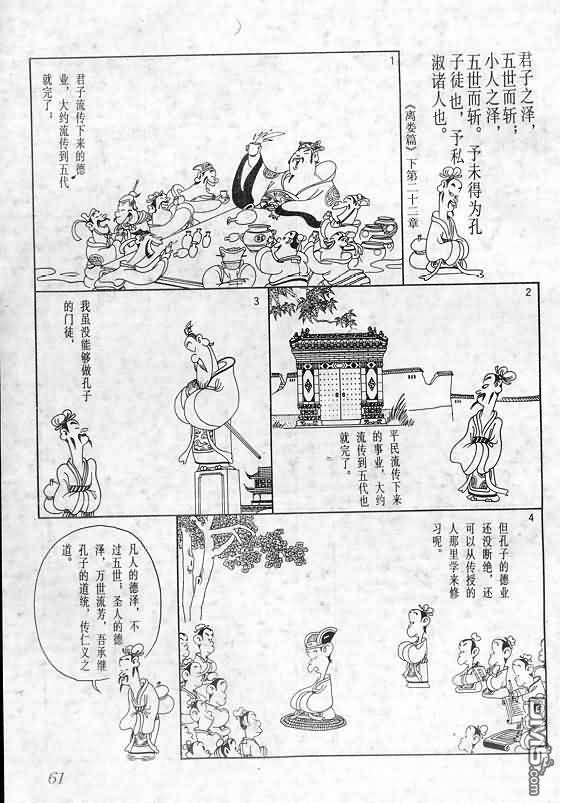 君子之泽，
五世而斩；
小人之泽，
五世而斩。予未得为孔
子徒也，予私
淑诸人也。
《离娄篇》下第二十二章
1
君子流传下来的德
业，大约流传到五代
就完了；
2
平民流传下来
的事业，大约
流传到五代也
就完了。
3
我虽没能够做孔子
的门徒，
4
但孔子的德业
还没断绝，还
可以从传授的
人那里学来修
习呢。
凡人的德泽，不
过五世；圣人的德
泽，万世流芳，吾承继
孔子的道统，传仁义之
道。
61